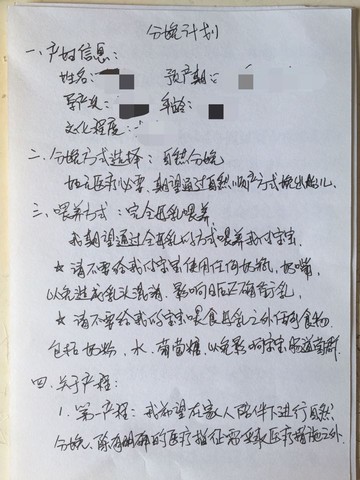 分娩计划
一、产妇信息：
姓名： 预产期：
孕产次： 年龄：
文化程度：
二、分娩方式选择：自然分娩
如无医疗必要，期望通过自然顺产方式娩出胎儿。
三、喂养方式：完全母乳喂养
我期望通过全母乳的方式喂养我的宝宝
★ 请不要给我的宝宝使用任何奶瓶，奶嘴，
以免造成乳头混淆，影响日后正确含乳
★ 请不要给我的宝宝喂食母乳之外任何食物
包括奶粉，水，葡萄糖，以免影响宝宝肠道菌群
四、关于产程：
1、第一产程：我希望在家人陪伴下进行自然
分娩、除有明确的医疗指征需要采取医疗措施之外、